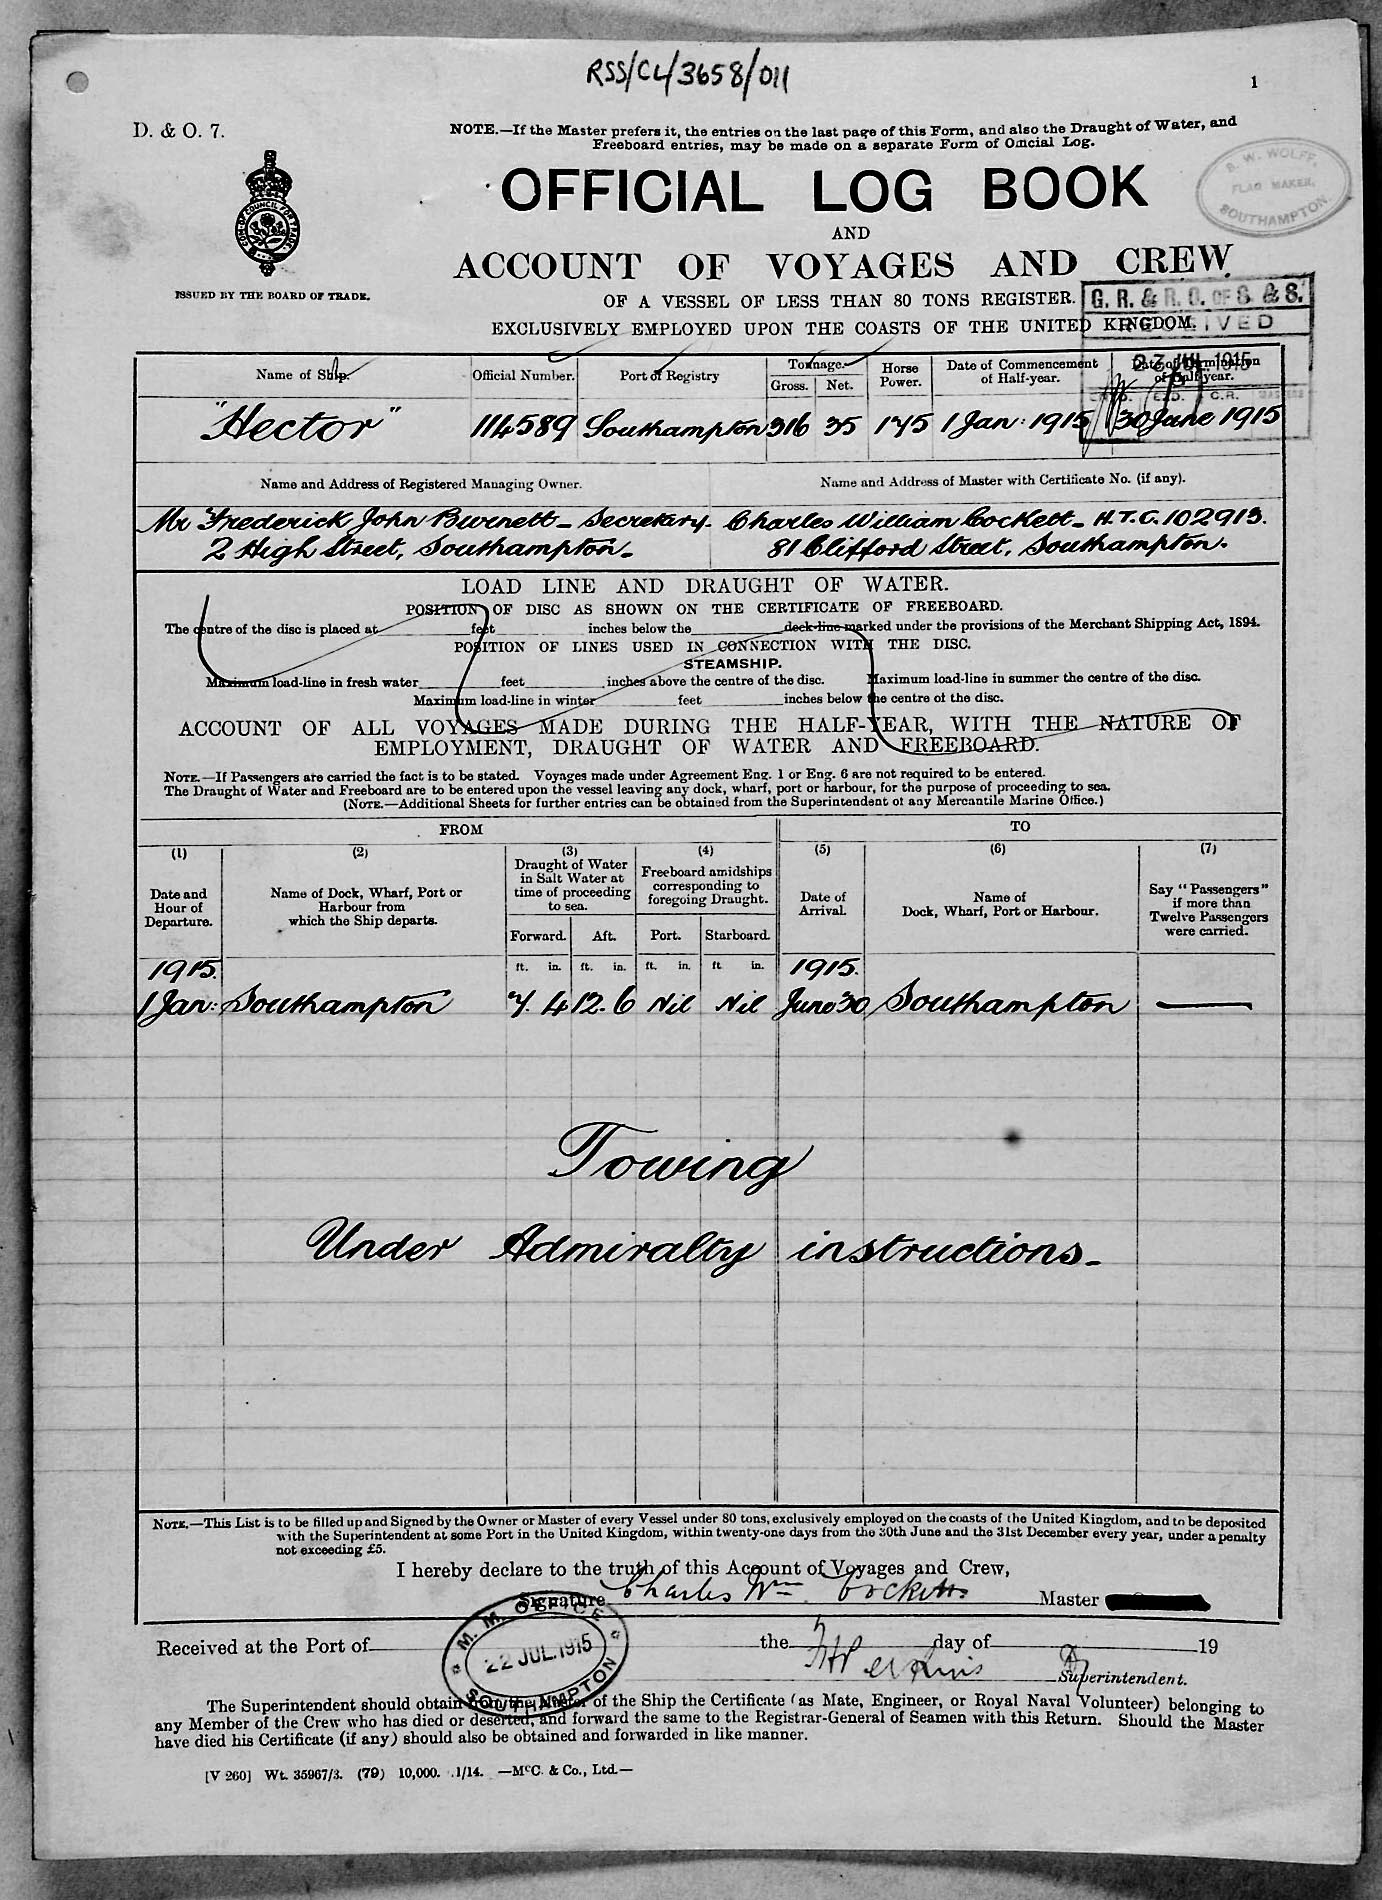 RSS/CL/3658/011
1
D. & O. 7.
NOTE.—If the Master prefers it, the entries on the last page of this Form, and also the Draught of Water, and
Freeboard entries, may be made on a separate Form of Official Log.
OFFICIAL LOG BOOK
AND
ACCOUNT OF VOYAGES AND CREW
OF A VESSEL OF LESS THAN 80 TONS REGISTER.
EXCLUSIVELY EMPLOYED UPON THE COASTS OF THE UNITED KINGDOM.
ISSUED BY THE BOARD OF TRADE.
B. W. WOLFF,
FLAG MAKER,
SOUTHAMPTON
G. R. & R. O. OF S. & S.
RECEIVED
23 JUL 1915
C.R.
Name of Ship. Official Number. Port of Registry Tonnage. Gross. Net. Horse Power. Date of Commencement of Half-year. Date of Termination of Half-year.
"Hector" 114589 Southampton 316 35 175 1 Jan: 1915 30 June 1915
Name and Address of Registered Managing Owner. Name and Address of Master with Certificate No. (if any).
Mr Frederick John Burnett - Secretary. Charles William Cockett - H.T.C. 102913.
2 High Street, Southampton. 81 Clifford Street, Southampton.
LOAD LINE AND DRAUGHT OF WATER.
POSITION OF DISC AS SHOWN ON THE CERTIFICATE OF FREEBOARD.
The centre of the disc is placed at feet inches below the deck-line marked under the provisions of the Merchant Shipping Act, 1894.
POSITION OF LINES USED IN CONNECTION WITH THE DISC.
STEAMSHIP.
Maximum load-line in fresh water feet inches above the centre of the disc. Maximum load-line in summer the centre of the disc.
Maximum load-line in winter feet inches below the centre of the disc.
ACCOUNT OF ALL VOYAGES MADE DURING THE HALF-YEAR, WITH THE NATURE OF
EMPLOYMENT, DRAUGHT OF WATER AND FREEBOARD.
NOTE.—If Passengers are carried the fact is to be stated. Voyages made under Agreement Eng. 1 or Eng. 6 are not required to be entered.
The Draught of Water and Freeboard are to be entered upon the vessel leaving any dock, wharf, port or harbour, for the purpose of proceeding to sea.
(NOTE.—Additional Sheets for further entries can be obtained from the Superintendent of any Mercantile Marine Office.)
FROM TO
(1) (2) (3) (4) (5) (6) (7)
Date and Hour of Departure. Name of Dock, Wharf, Port or Harbour from which the Ship departs. Draught of Water in Salt Water at time of proceeding to sea. Freeboard amidships corresponding to foregoing Draught. Date of Arrival. Name of Dock, Wharf, Port or Harbour. Say "Passengers" if more than Twelve Passengers were carried.
Forward. Aft. Port. Starboard.
1915. ft. in. ft. in. ft. in. ft. in. 1915.
1 Jan: Southampton 7. 4 12. 6 Nil Nil June 30 Southampton —
Towing
Under Admiralty instructions -
NOTE.—This List is to be filled up and Signed by the Owner or Master of every Vessel under 80 tons, exclusively employed on the coasts of the United Kingdom, and to be deposited
with the Superintendent at some Port in the United Kingdom, within twenty-one days from the 30th June and the 31st December every year, under a penalty
not exceeding £5.
I hereby declare to the truth of this Account of Voyages and Crew,
Signature Charles Wm Cockett Master
Received at the Port of the day of 19
Superintendent.
M. M. OFFICE
22 JUL. 1915
SOUTHAMPTON
The Superintendent should obtain from the Master of the Ship the Certificate (as Mate, Engineer, or Royal Naval Volunteer) belonging to
any Member of the Crew who has died or deserted, and forward the same to the Registrar-General of Seamen with this Return. Should the Master
have died his Certificate (if any) should also be obtained and forwarded in like manner.
[V 260] Wt. 35967/3. (79) 10,000. 1/14. —McC. & Co., Ltd.—